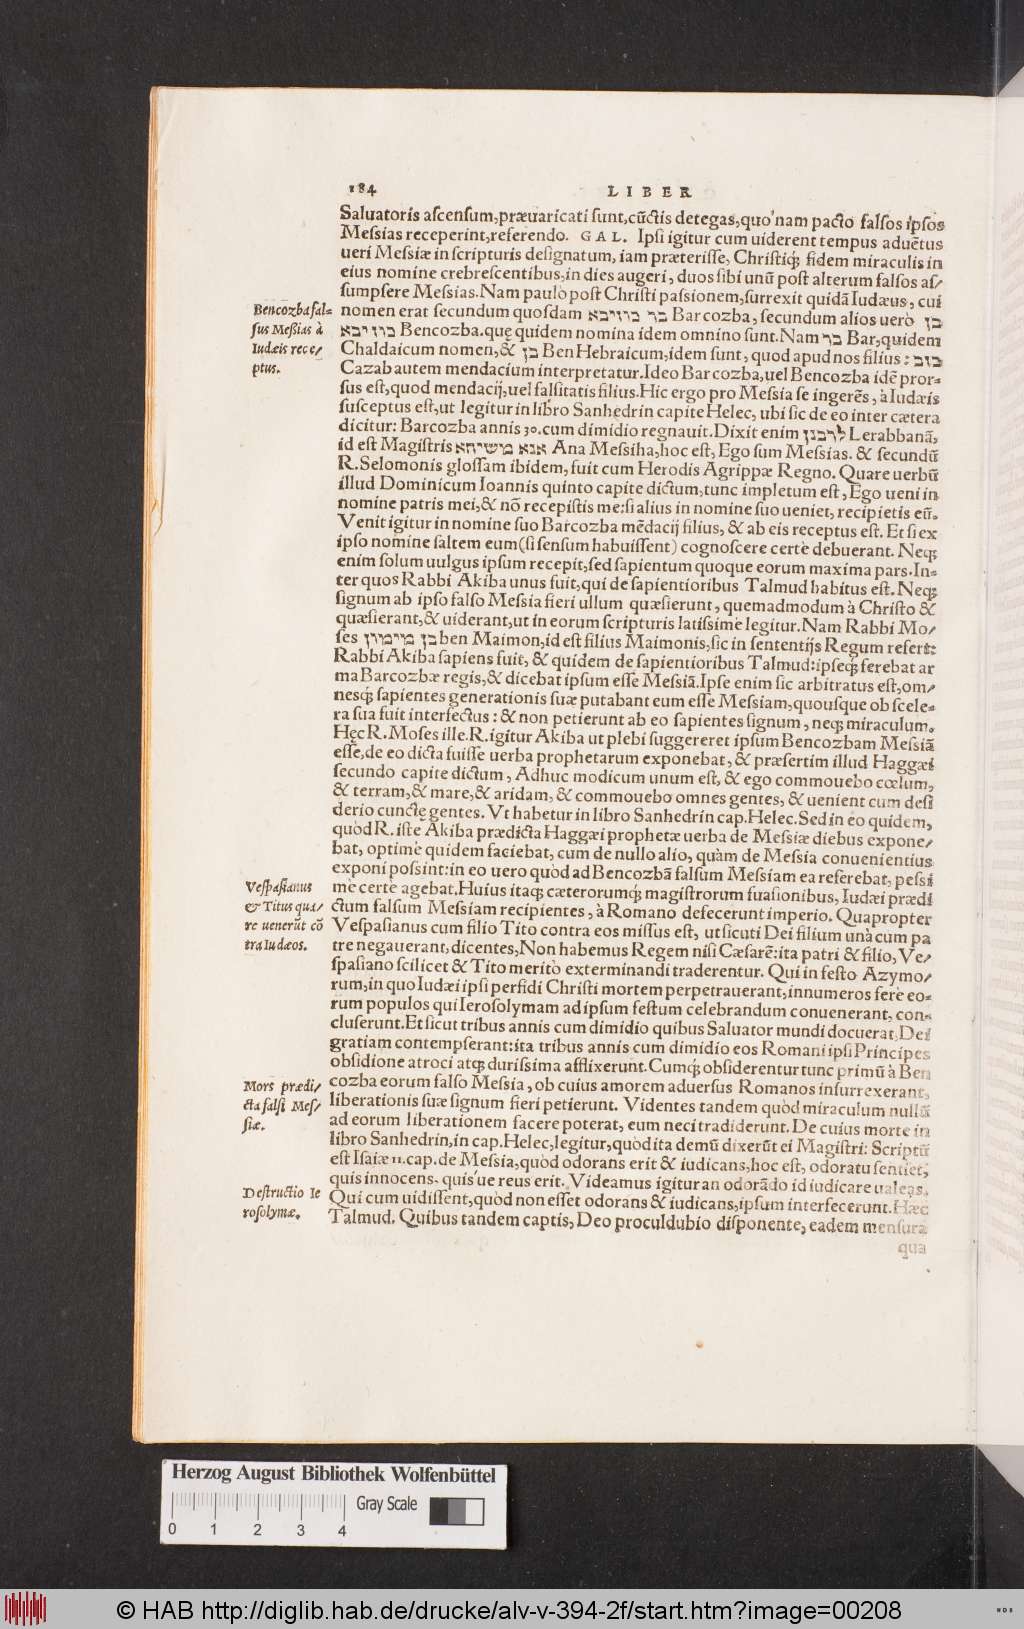 184 LIBER
Saluatoris ascensum,præuaricati sunt,cũctis detegas,quo'nam pacto falsos ipsos
Messias receperint,referendo. GAL. Ipsi igitur cum uiderent tempus aduẽtus
ueri Messiæ in scripturis designatum, iam præterisse, Christiq; fidem miraculis in
eius nomine crebrescentibus,in dies augeri, duos sibi unũ post alterum falsos as/
sumpsere Messias.Nam paulò post Christi passionem,surrexit quidã Iudæus, cui
nomen erat secundum quosdam בר כוזיבא Barcozba, secundum alios uerò בן
כוזיבא Bencozba.quę quidem nomina idem omnino sunt.Nam בר Bar,quidem
Chaldaicum nomen,& בן Ben Hebraicum,idem sunt, quod apud nos filius: כזב
Cazab autem mendacium interpretatur.Ideo Barcozba,uel Bencozba idẽ pror-
sus est,quod mendacij,uel falsitatis filius.Hic ergo pro Messia se ingerẽs, à Iudæis
susceptus est,ut legitur in libro Sanhedrin capite Helec, ubi sic de eo inter cætera
dicitur: Barcozba annis 30.cum dimidio regnauit.Dixit enim לרבנן Lerabbanã,
id est Magistris אנא משיחא Ana Messiha,hoc est, Ego sum Messias. & secundũ
R.Selomonis glossam ibidem, fuit cum Herodis Agrippæ Regno. Quare uerbũ
illud Dominicum Ioannis quinto capite dictum,tunc impletum est, Ego ueni in
nomine patris mei,& nõ recepistis me:si alius in nomine suo ueniet, recipietis eũ.
Venit igitur in nomine suo Barcozba mẽdacij filius, & ab eis receptus est. Et si ex
ipso nomine saltem eum (si sensum habuissent) cognoscere certè debuerant. Neq;
enim solum uulgus ipsum recepit,sed sapientum quoque eorum maxima pars.In-
ter quos Rabbi Akiba unus fuit,qui de sapientioribus Talmud habitus est.Neq;
signum ab ipso falso Messia fieri ullum quæsierunt, quemadmodum à Christo &
quæsierant,& uiderant,ut in eorum scripturis latissimè legitur.Nam Rabbi Mo/
ses בן מיימון ben Maimon,id est filius Maimonis,sic in sententijs Regum refert:
Rabbi Akiba sapiens fuit, & quidem de sapientioribus Talmud:ipseq; ferebat ar
ma Barcozbæ regis,& dicebat ipsum esse Messiã.Ipse enim sic arbitratus est,om/
nesq; sapientes generationis suæ putabant eum esse Messiam,quousque ob scele-
ra sua fuit interfectus: & non petierunt ab eo sapientes signum, neq; miraculum.
Hęc R. Moses ille.R.igitur Akiba ut plebi suggereret ipsum Bencozbam Messiã
esse,de eo dicta fuisse uerba prophetarum exponebat, & præsertim illud Haggæi
secundo capite dictum, Adhuc modicum unum est, & ego commouebo cœlum,
& terram,& mare,& aridam, & commouebo omnes gentes, & uenient cum desi
derio cunctę gentes. Vt habetur in libro Sanhedrin cap.Helec.Sed in eo quidem,
quòd R. iste Akiba prædicta Haggæi prophetæ uerba de Messiæ diebus expone/
bat, optimè quidem faciebat, cum de nullo alio, quàm de Messia conuenientius
exponi possint:in eo uero quòd ad Bencozbã falsum Messiam ea referebat, pessi
mè certè agebat.Huius itaq; cæterorumq; magistrorum suasionibus, Iudæi prædi
ctum falsum Messiam recipientes, à Romano defecerunt imperio. Quapropter
Vespasianus cum filio Tito contra eos missus est, ut sicuti Dei filium unà cum pa
tre negauerant, dicentes,Non habemus Regem nisi Cæsarẽ:ita patri & filio, Ve/
spasiano scilicet & Tito meritò exterminandi traderentur. Qui in festo Azymo/
rum,in quo Iudæi ipsi perfidi Christi mortem perpetrauerant,innumeros ferè eo-
rum populos qui Ierosolymam ad ipsum festum celebrandum conuenerant, con-
cluserunt.Et sicut tribus annis cum dimidio quibus Saluator mundi docuerat,Dei
gratiam contempserant:ita tribus annis cum dimidio eos Romani ipsi Principes
obsidione atroci atq; durissima afflixerunt.Cumq; obsiderentur tunc primũ à Ben
cozba eorum falso Messia, ob cuius amorem aduersus Romanos insurrexerant,
liberationis suæ signum fieri petierunt. Videntes tandem quòd miraculum nullũ
ad eorum liberationem facere poterat, eum neci tradiderunt. De cuius morte in
libro Sanhedrin,in cap.Helec,legitur,quòd ita demũ dixerũt ei Magistri: Scriptũ
est Isaiæ 11.cap.de Messia,quòd odorans erit & iudicans,hoc est, odoratu sentiet,
quis innocens, quis'ue reus erit. Videamus igitur an odorãdo id iudicare ualeas.
Qui cum uidissent,quòd non esset odorans & iudicans,ipsum interfecerunt.Hæc
Talmud. Quibus tandem captis, Deo proculdubio disponente, eadem mensura
qua
Bencozba fal-
sus Messias à
Iudæis rece/
ptus.
Vespasianus
& Titus qua/
re uenerũt cõ
tra Iudæos.
Mors prædi/
cta falsi Mes/
siæ.
Destructio Ie
rosolymæ.
Herzog August Bibliothek Wolfenbüttel
Gray Scale
0 1 2 3 4
© HAB http://diglib.hab.de/drucke/alv-v-394-2f/start.htm?image=00208